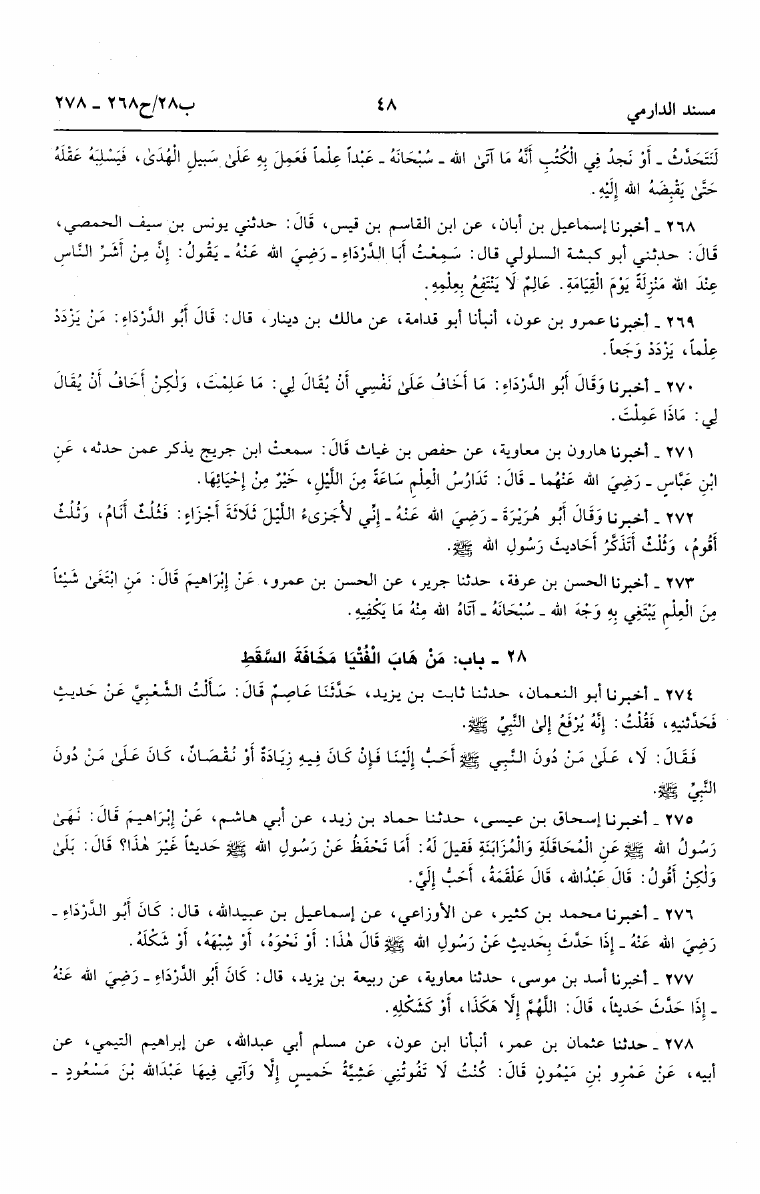 مسند الدارمي ٤٨ ب٢٨/ح٢٦٨ ـ ٢٧٨
لَنَتَحَدَّثُ ـ أَوْ نَجِدُ فِي الْكُتُبِ أَنَّهُ مَا آتَىٰ الله ـ سُبْحَانَهُ ـ عَبْداً عِلْماً فَعَمِلَ بِهِ عَلَىٰ سَبِيلِ الْهُدَىٰ، فَيَسْلِبَهُ عَقْلَهُ
حَتَّىٰ يَقْبِضَهُ الله إِلَيْهِ.
٢٦٨ ـ أخبرنا إسماعيل بن أبان، عن ابن القاسم بن قيس، قَالَ: حدثني يونس بن سيف الحمصي،
قَالَ: حدثني أبو كبشة السلولي قال: سَمِعْتُ أَبَا الدَّرْدَاءِ ـ رَضِيَ الله عَنْهُ ـ يَقُولُ: إِنَّ مِنْ أَشَرِّ النَّاسِ
عِنْدَ الله مَنْزِلَةً يَوْمَ الْقِيَامَةِ. عَالِمٌ لَا يَنْتَفِعُ بِعِلْمِهِ.
٢٦٩ ـ أخبرنا عمرو بن عون، أنبأنا أبو قدامة، عن مالك بن دينار، قال: قَالَ أَبُو الدَّرْدَاءِ: مَنْ يَزْدَدْ
عِلْماً، يَزْدَدْ وَجَعاً.
٢٧٠ ـ أخبرنا وَقَالَ أَبُو الدَّرْدَاءِ: مَا أَخَافُ عَلَىٰ نَفْسِي أَنْ يُقَالَ لِي: مَا عَلِمْتَ، وَلٰكِنْ أَخَافُ أَنْ يُقَالَ
لِي: مَاذَا عَمِلْتَ.
٢٧١ ـ أخبرنا هارون بن معاوية، عن حفص بن غياث قَالَ: سمعتُ ابن جريج يذكر عمن حدثه، عَنِ
ابْنِ عَبَّاسٍ ـ رَضِيَ الله عَنْهُما ـ قَالَ: تَدَارُسُ الْعِلْمِ سَاعَةً مِنَ اللَّيْلِ، خَيْرٌ مِنْ إِحْيَائِهَا.
٢٧٢ ـ أخبرنا وَقَالَ أَبُو هُرَيْرَةَ ـ رَضِيَ الله عَنْهُ ـ إِنِّي لأُجَزِىءُ اللَّيْلَ ثَلَاثَةَ أَجْزَاءٍ: فَثُلُثٌ أَنَامُ، وَثُلُثٌ
أَقُومُ، وَثُلُثٌ أَتَذَكَّرُ أَحَادِيثَ رَسُولِ الله ﷺ.
٢٧٣ ـ أخبرنا الحسن بن عرفة، حدثنا جرير، عن الحسن بن عمرو، عَنْ إِبْرَاهِيمَ قَالَ: مَنِ ابْتَغَىٰ شَيْئاً
مِنَ الْعِلْمِ يَبْتَغِي بِهِ وَجْهَ الله ـ سُبْحَانَهُ ـ آتَاهُ الله مِنْهُ مَا يَكْفِيهِ.
٢٨ ـ باب: مَنْ هَابَ الْفُتْيَا مَخَافَةَ السَّقَطِ
٢٧٤ ـ أخبرنا أبو النعمان، حدثنا ثابت بن يزيد، حَدَّثَنَا عَاصِمٌ قَالَ: سَأَلْتُ الشَّعْبِيَّ عَنْ حَدِيثٍ
فَحَدَّثَنِيهِ، فَقُلْتُ: إِنَّهُ يُرْفَعُ إِلىٰ النَّبِيِّ ﷺ.
فَقَالَ: لَا، عَلَىٰ مَنْ دُونَ النَّبِي ﷺ أَحَبُّ إِلَيْنَا فَإِنْ كَانَ فِيهِ زِيَادَةٌ أَوْ نُقْصَانٌ، كَانَ عَلَىٰ مَنْ دُونَ
النَّبِيِّ ﷺ.
٢٧٥ ـ أخبرنا إسحاق بن عيسى، حدثنا حماد بن زيد، عن أبي هاشم، عَنْ إِبْرَاهِيمَ قَالَ: نَهَىٰ
رَسُولُ الله ﷺ عَنِ الْمُحَاقَلَةِ وَالْمُزَابَنَةِ فَقِيلَ لَهُ: أَمَا تَحْفَظُ عَنْ رَسُولِ الله ﷺ حَدِيثاً غَيْرَ هٰذَا؟ قَالَ: بَلَىٰ
وَلٰكِنْ أَقُولُ: قَالَ عَبْدُالله، قَالَ عَلْقَمَةُ، أَحَبُّ إِلَيَّ.
٢٧٦ ـ أخبرنا محمد بن كثير، عن الأوزاعي، عن إسماعيل بن عبيدالله، قال: كَانَ أَبُو الدَّرْدَاءِ ـ
رَضِيَ الله عَنْهُ ـ إِذَا حَدَّثَ بِحَدِيثٍ عَنْ رَسُولِ الله ﷺ قَالَ هٰذَا: أَوْ نَحْوَهُ، أَوْ شِبْهَهُ، أَوْ شَكْلَهُ.
٢٧٧ ـ أخبرنا أسد بن موسى، حدثنا معاوية، عن ربيعة بن يزيد، قال: كَانَ أَبُو الدَّرْدَاءِ ـ رَضِيَ الله عَنْهُ
ـ إِذَا حَدَّثَ حَدِيثاً، قَالَ: اللَّهُمَّ إِلَّا هَكَذَا، أَوْ كَشَكْلِهِ.
٢٧٨ ـ حدثنا عثمان بن عمر، أنبأنا ابن عون، عن مسلم أبي عبدالله، عن إبراهيم التيمي، عن
أبيه، عَنْ عَمْرِو بْنِ مَيْمُونٍ قَالَ: كُنْتُ لَا تَفُوتُنِي عَشِيَّةُ خَمِيسٍ إِلَّا وَآتِي فِيهَا عَبْدَالله بْنَ مَسْعُودٍ ـ